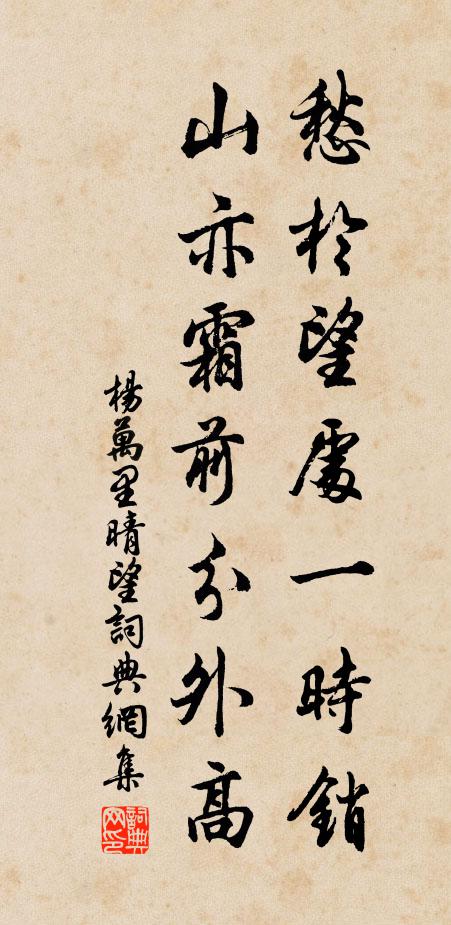 愁於望處一時銷
山亦霜前分外高
楊萬里晴望詞典網集
詞典网印